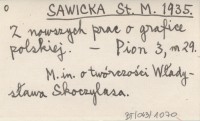 o SAWICKA St. M. 1935.
Z nowszych prac o grafice
polskiej. — Pion 3, m 29.
M. in. o twórczości Włady-
sława Skoczylasa.
1070